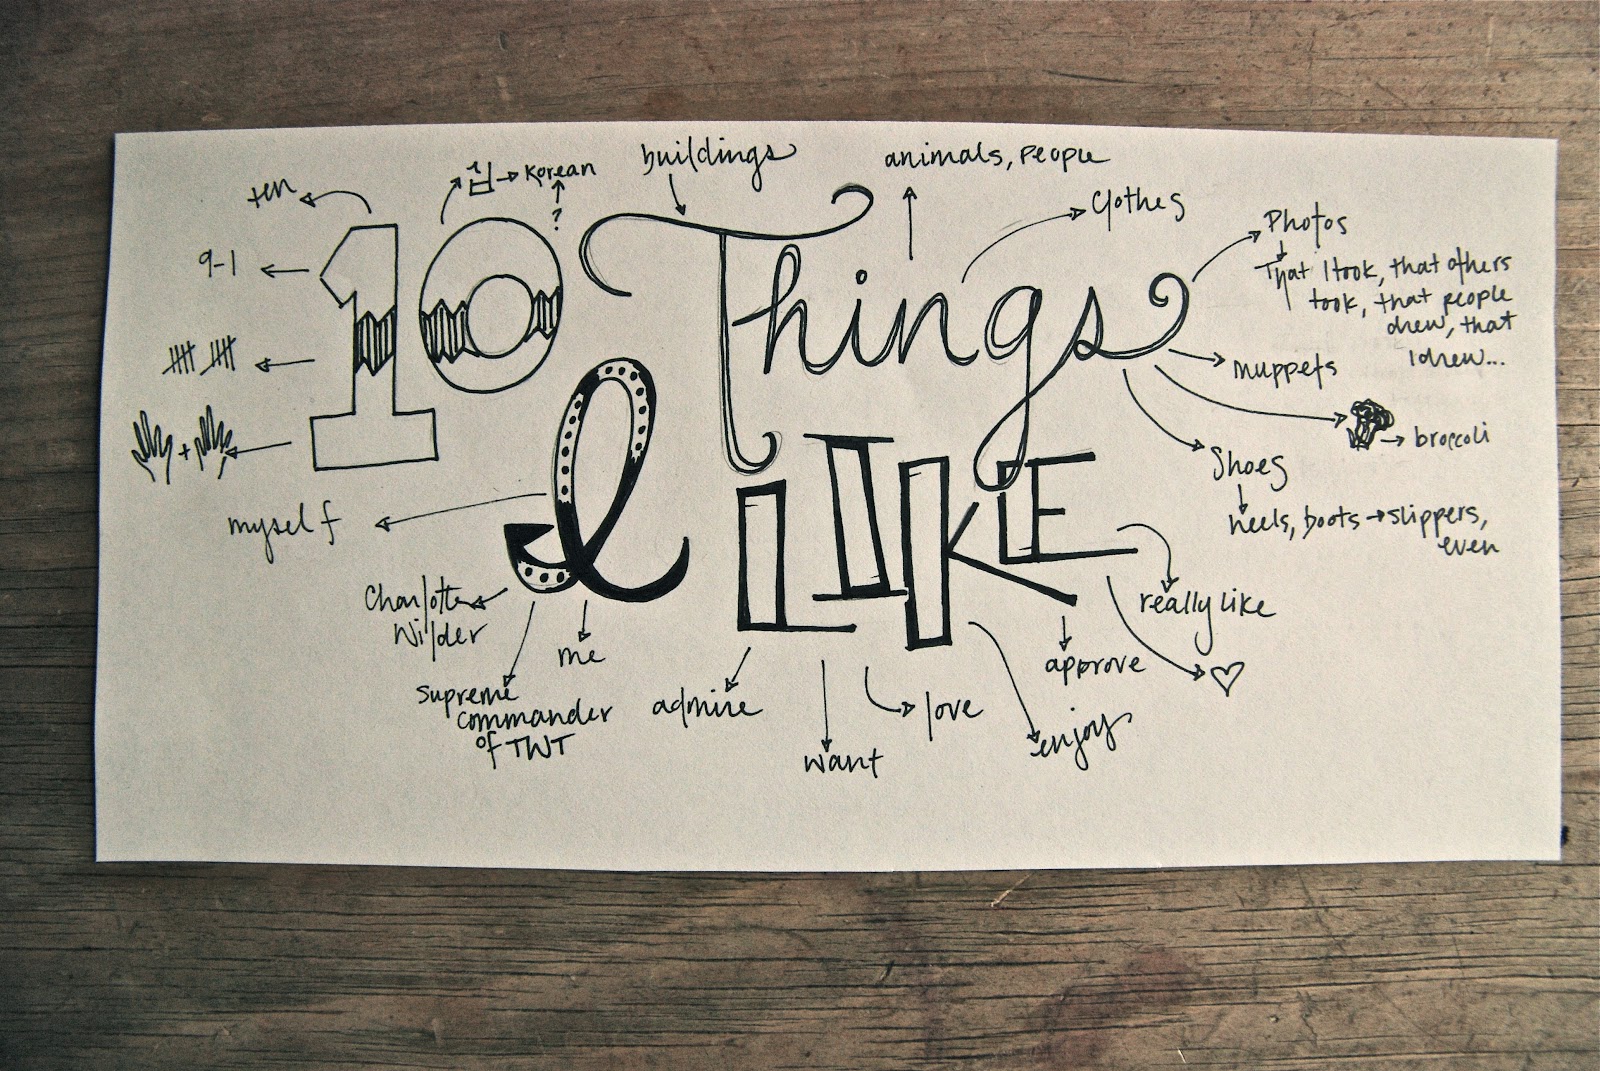 ten
십 → Korean
?
buildings
animals, people
Clothes
9-1
Photos
That I took, that others
took, that people
drew, that
I drew...
10 Things
I LIKE
muppets
+
broccoli
Shoes
heels, boots → slippers,
even
myself
Charlotte
Wilder
me
supreme
commander
of TWT
admire
want
love
enjoy
approve
really like